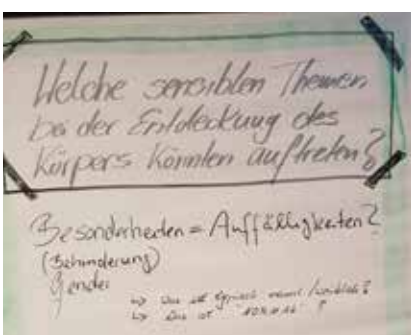 Welche sensiblen Themen
bei der Entdeckung des
Körpers könnten auftreten?
Besonderheiten = Auffälligkeiten?
(Behinderung)
Gender
↳ Was ist typisch männl./weiblich?
↳ Was ist NORMAL?